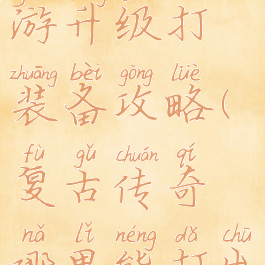 游升级打
zhuāng bèi gōng lüè
装备攻略(
fù gǔ chuán qí
复古传奇
nǎ lǐ néng dǎ chū
哪里能打出